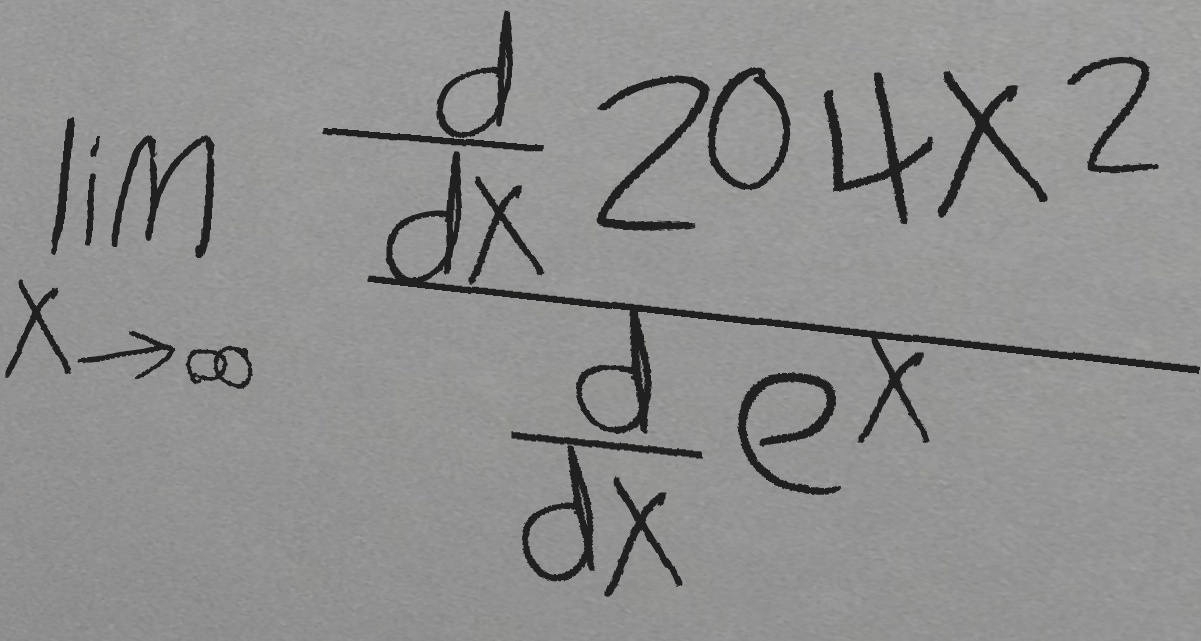 lim x→∞ \frac{\frac{d}{dx} 204x^2}{\frac{d}{dx} e^x}